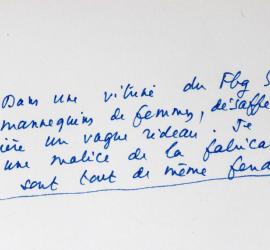 Dans une vitrine du Fbg S
mannequins de femmes, désaffe
ière un vague rideau. Je
une malice de la fabrica
sont tout de même fend